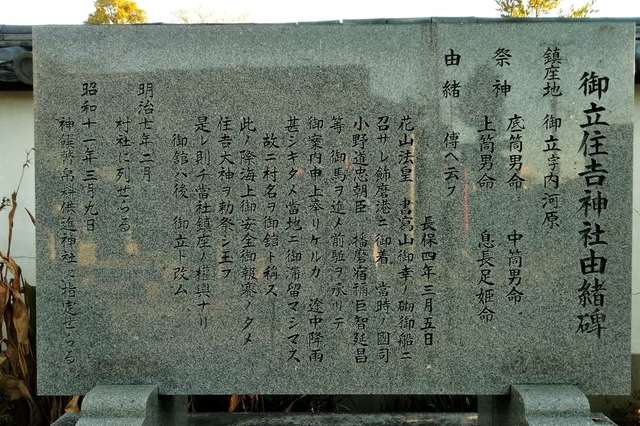 御立住吉神社由緒碑
鎮座地 御立字内河原
祭神 底筒男命 中筒男命
上筒男命 息長足姫命
由緒 傳ヘ云フ
長保四年三月五日
花山法皇 書寫山御幸ノ砌御船ニ
召サレ飾磨港ニ御着 當時ノ國司
小野道忠朝臣 播磨宿禰巨智延昌
等 御馬ヲ進メ前駈ヲ承リテ
御案内申上奉リケルカ 途中降雨
甚シキタメ當地ニ御滞留マシマス
故ニ村名ヲ御舘ト稱ス
此ノ降海上御安全御報賽ノタメ
住吉大神ヲ勅祭シ玉フ
是レ則チ當社鎮座ノ權輿ナリ
御舘ハ後 御立ト改ム
明治七年二月
村社に列せらる
昭和十一年三月九日
神饌幣帛料供進神社に指定せらる